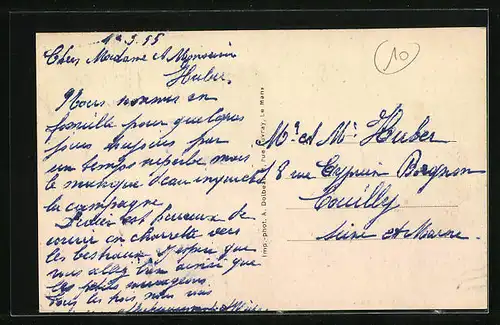 1-3.55
Chers Madame et Monsieur
Huber.
Nous sommes en
famille pour quelques
jours toujours par
un temps superbe mais
le manque d'eau inquiète
la campagne.
Didier est heureux de
courir en charrette vers
les bestiaux. J'espère que
vous allez bien ainsi que
les petits
Tous les trois nous vous
Imp.-phot. A. Dolbeau, rue Gougeard, Le Mans
10
Mr et Me Huber
18 rue Cyprien Bergnon
Couilly
Seine et Marne.